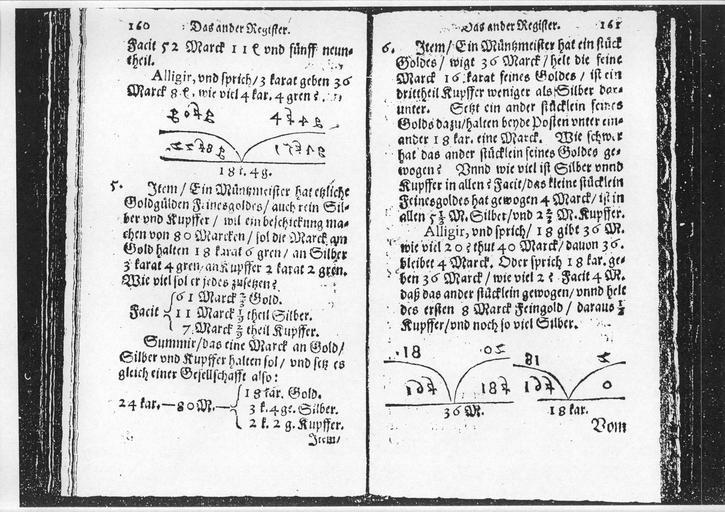 160 Das ander Register.
Facit 52 Marck 11 ℓ vnd fünff neun-
theil.
Alligir, vnd sprich/ 3 karat geben 36
Marck 8 ℓ, wie viel 4 kar. 4 gren?
18 k. 4 g.
5. Item/ Ein Müntzmeister hat etzliche
Goldgülden Feinesgoldes/ auch rein Sil-
ber vnd Kupffer/ wil ein beschickung ma-
chen von 80 Marcken/ sol die Marck am
Gold halten 18 karat 6 gren/ an Silber
3 karat 4 gren/ an Kupffer 2 karat 2 gren.
Wie viel sol er jedes zusetzen?
61 Marck ⅔ Gold.
Facit 11 Marck ⅑ theil Silber.
7 Marck 2/9 theil Kupffer.
Summir/ das eine Marck an Gold/
Silber vnd Kupffer halten sol/ vnd setz es
gleich einer Gesellschafft also:
18 kar. Gold.
24 kar. — 80 M. — 3 k. 4 ge. Silber.
2 k. 2 g. Kupffer.
Item/
Das ander Register. 161
6. Item/ Ein Müntzmeister hat ein stück
Goldes/ wigt 36 Marck/ helt die feine
Marck 16 karat feines Goldes/ ist ein
drittheil Kupffer weniger als Silber dar-
unter. Setzt ein ander stücklein feines
Golds dazu/ halten beyde Posten vnter ein-
ander 18 kar. eine Marck. Wie schwer
hat das ander stücklein feines Goldes ge-
wogen? Vnnd wie viel ist Silber vnnd
Kupffer in allen? Facit/ das kleine stücklein
Feinesgoldes hat gewogen 4 Marck/ ist in
allen 5⅓ M. Silber/ vnd 2⅔ M. Kupffer.
Alligir, vnd sprich/ 18 gibt 36 M.
wie viel 20? thut 40 Marck/ dauon 36.
bleibet 4 Marck. Oder sprich 18 kar. ge-
ben 36 Marck/ wie viel 2? Facit 4 M.
daß das ander stücklein gewogen/ vnnd helt
des ersten 8 Marck Feingold/ daraus ⅓
Kupffer/ vnd noch so viel Silber.
36 M. 18 kar.
Vom